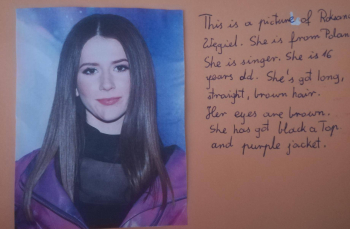 This is a picture of Roksana
Węgiel. She is from Polan
She is singer. She is 16
years old. She's got long,
straight, brown hair.
Her eyes are brown.
She has got black a Top
and purple jacket.